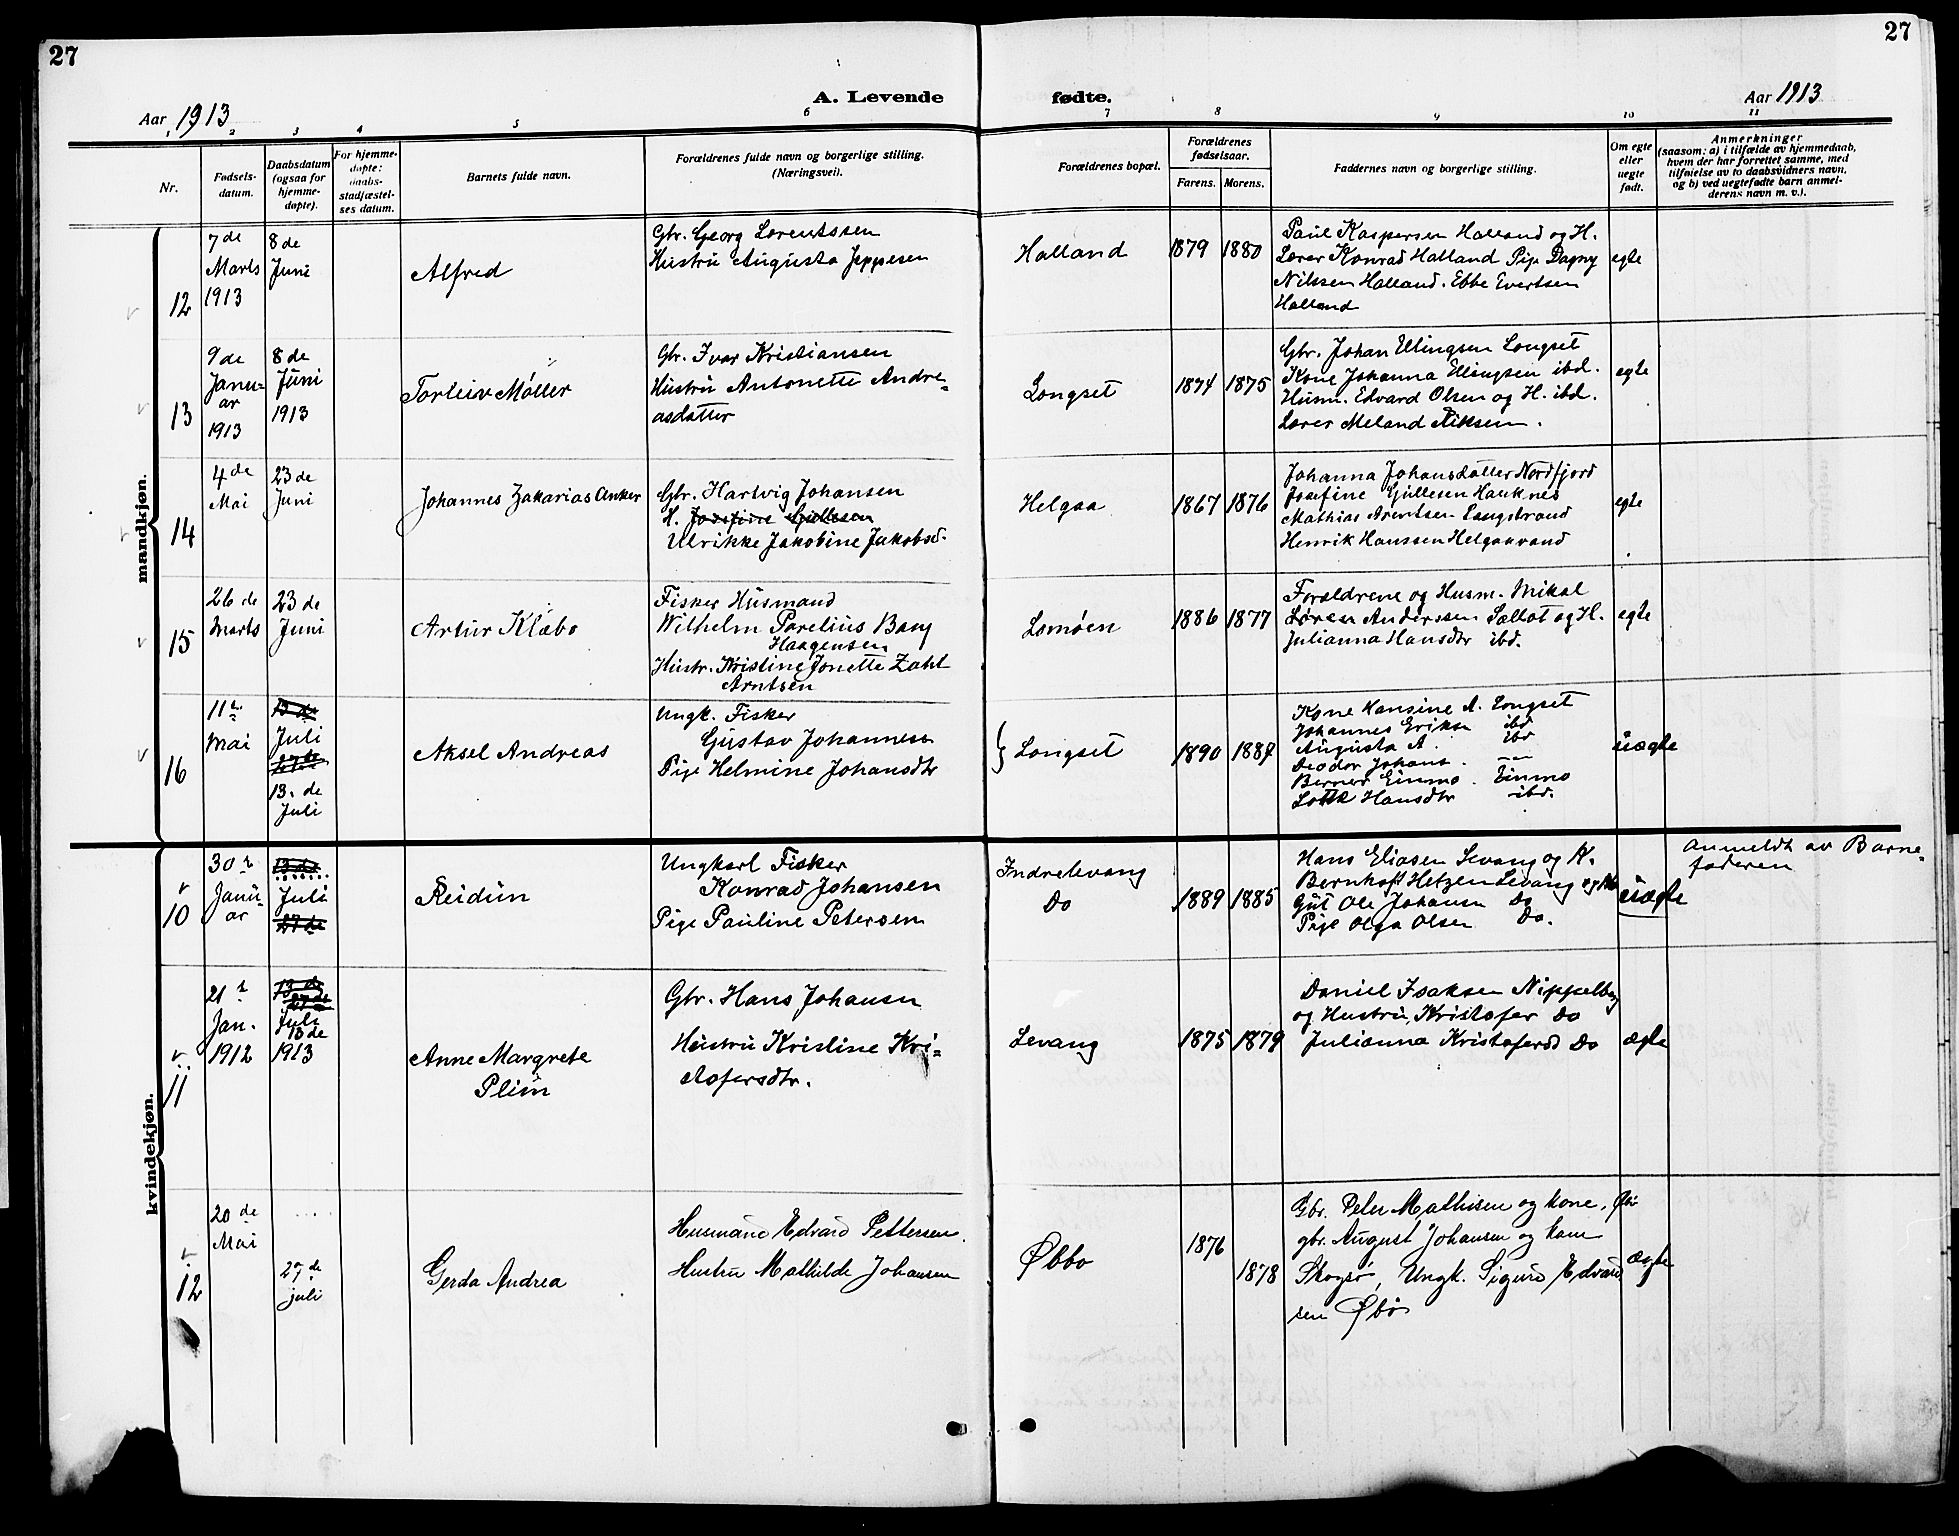 27
27
A. Levende fødte.
Aar 1913
Aar 1913
1 2 3 4 5 6 7 8 9 10 11
Nr.
Fødsels-
datum.
Daabsdatum
(ogsaa for
hjemme-
døpte).
For hjemme-
døpte:
daabs-
stadfæstel-
ses datum.
Barnets fulde navn.
Forældrenes fulde navn og borgerlige stilling.
(Næringsvei).
Forældrenes bopæl.
Forældrenes
fødselsaar.
Farens. Morens.
Faddernes navn og borgerlige stilling.
Om egte
eller
uegte
født.
Anmerkninger
(saasom: a) i tilfælde av hjemmedaab,
hvem der har forrettet samme, med
tilføielse av to daabsvidners navn,
og b) ved uegtefødte barn anmel-
derens navn m. v.).
mandkjøn.
12
7 de
Marts
1913
8 de
Juni
Alfred
Gbr. Georg Lorentssen
Hustru Augusta Jeppesen
Halland
1879 1880
Paul Kaspersen Halland og H.
Lærer Konrad Halland Pige Dagny
Nilssen Halland. Ebbe Evertsen
Halland
egte
13
9 de
Janu-
ar
1913
8 de
Juni
1913
Torleiv Møller
Gbr. Ivar Kristiansen
Hustru Antonette Andre-
asdatter
Longset
1874 1875
Gbr. Johan Ellingsen Longset
Kone Johanna Ellingsen ibd.
Husm. Edvard Olsen og H. ibd.
Lærer Meland
egte
14
4 de
Mai
23 de
Juni
Johannes Zakarias Anker
Gbr. Hartvig Johansen
H. Josefine Gullesen
Ulrikke Jakobine Jakobsd.
Helgaa
1867 1876
Johanna Johansdatter Nordfjord
Josefine Gullesen Hauknes
Mathias Arentsen Langstrand
Henrik Hanssen Helgaavand
egte
15
26 de
Marts
23 de
Juni
Artur Klæbo
Fisker Husmand
Wilhelm Parelius Bang
Haagensen
Hustr. Kristine Jonette Zahl
Arntsen
Lomøen
1886 1877
Forældrene og Husm. Mikal
Søren Anderssen og H.
Julianna Hansdtr ibd.
egte
16
11
Mai
13 de
Juli
27 de
13. de
Juli
Aksel Andreas
Ungk. Fisker
Gustav Johannesen
Pige Helmine Johansdtr
Longset
1890 1887
Kone Hansine A. Longset
Johannes Eriks ibd
Augusta A. ibd
Teodor Johans.
Berner Einmo. Einmo
Hansdtr ibd.
uægte
kvindekjøn.
10
30
Janu-
ar
13 de
Juli
27 de
Reidun
Ungkarl Fisker
Konrad Johansen
Pige Pauline Petersen
Indrelevang
Do
1889 1885
Hans Eliasen Levang og K.
Bernhoft Hetzen Levang og
Gut Ole Johansen Do
Pige Olga Olsen Do.
uægte
Anmeldt av Barne-
faderen
11
21
Jan.
1912
13 de
27 de
Juli
13 de
1913
Anne Margrete
Plim
Gbr. Hans Johansen
Hustru Kristine Kri-
stofersdtr.
Levang
1875 1879
Daniel Isaksen Nippelberg
og Hustru, Kristofer Do
Julianna Kristofersd Do
ægte
12
20 de
Mai
27 de
juli
Gerda Andrea
Husmand Edvard Pettersen.
Hustru Mathilde Johansen
Øbbo
1876
1878
Gbr. Peter Mathisen og kone, Øbø
gbr. August Johansen og kone
Skogsø, Ungk. Sigurd Edvard
sen Øbø
ægte